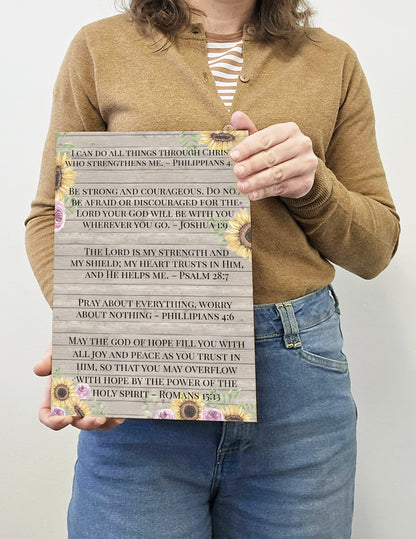 I can do all things through Christ
who strengthens me. – Philippians 4:
Be strong and courageous. Do not
be afraid or discouraged for the
Lord your God will be with you
wherever you go. – Joshua 1:9
The Lord is my strength and
my shield; my heart trusts in Him,
and He helps me. – Psalm 28:7
Pray about everything, worry
about nothing – Phillippians 4:6
May the god of hope fill you with
all joy and peace as you trust in
him, so that you may overflow
with hope by the power of the
holy spirit – Romans 15:13